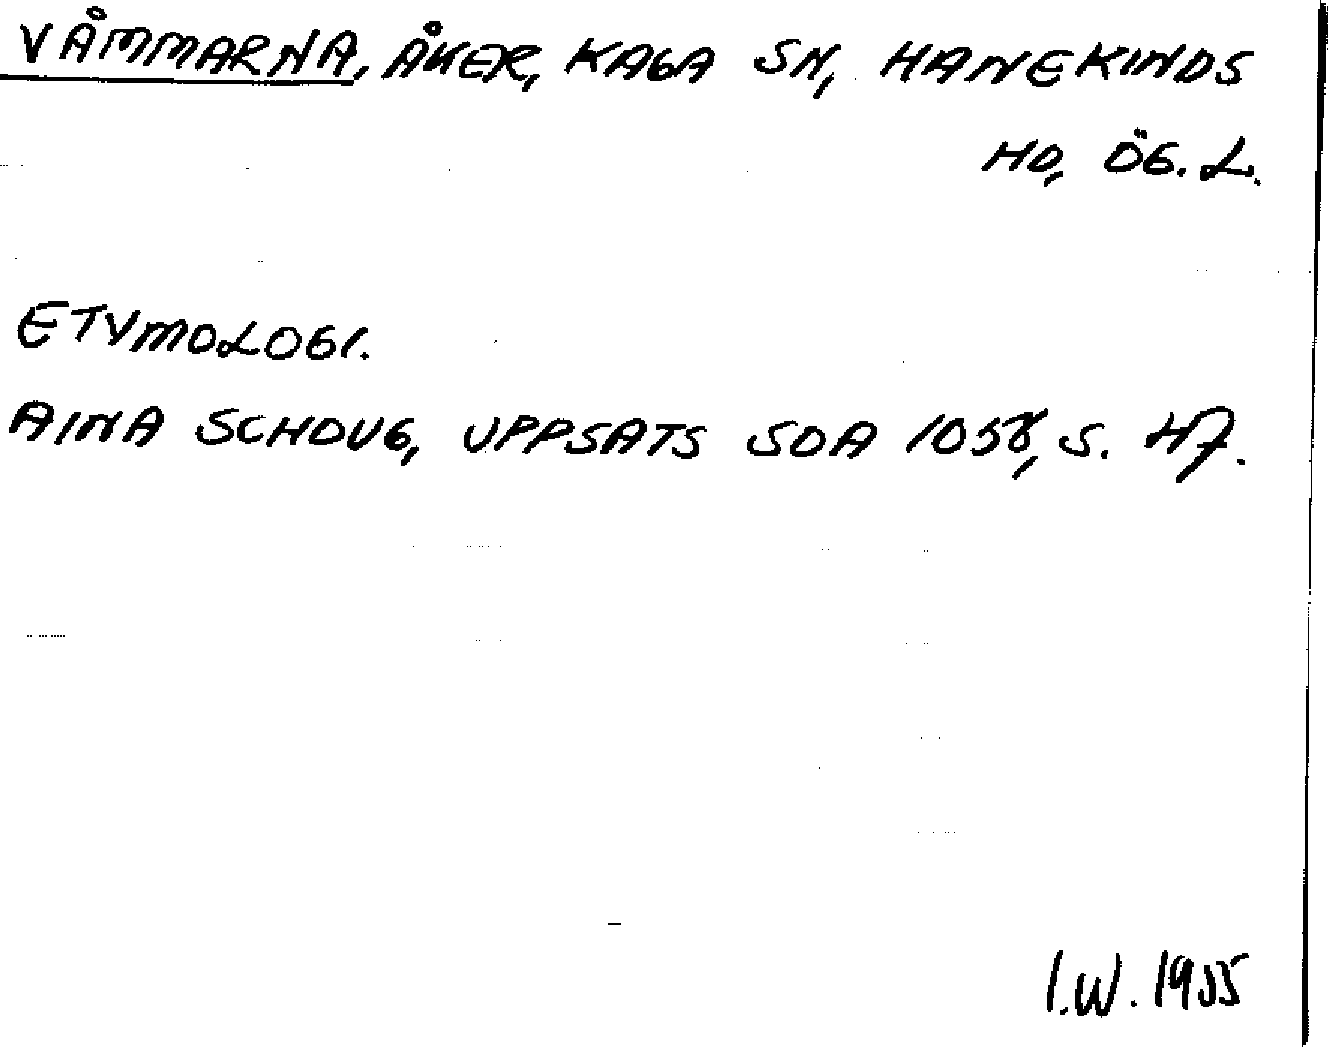 VÅMMARNA, ÅKER, KAGA SN, HANEKINDS
HD, ÖG. L.
ETYMOLOGI.
AINA SCHOUG, UPPSATS SOA 1058, S. 47.
I.W. 1955